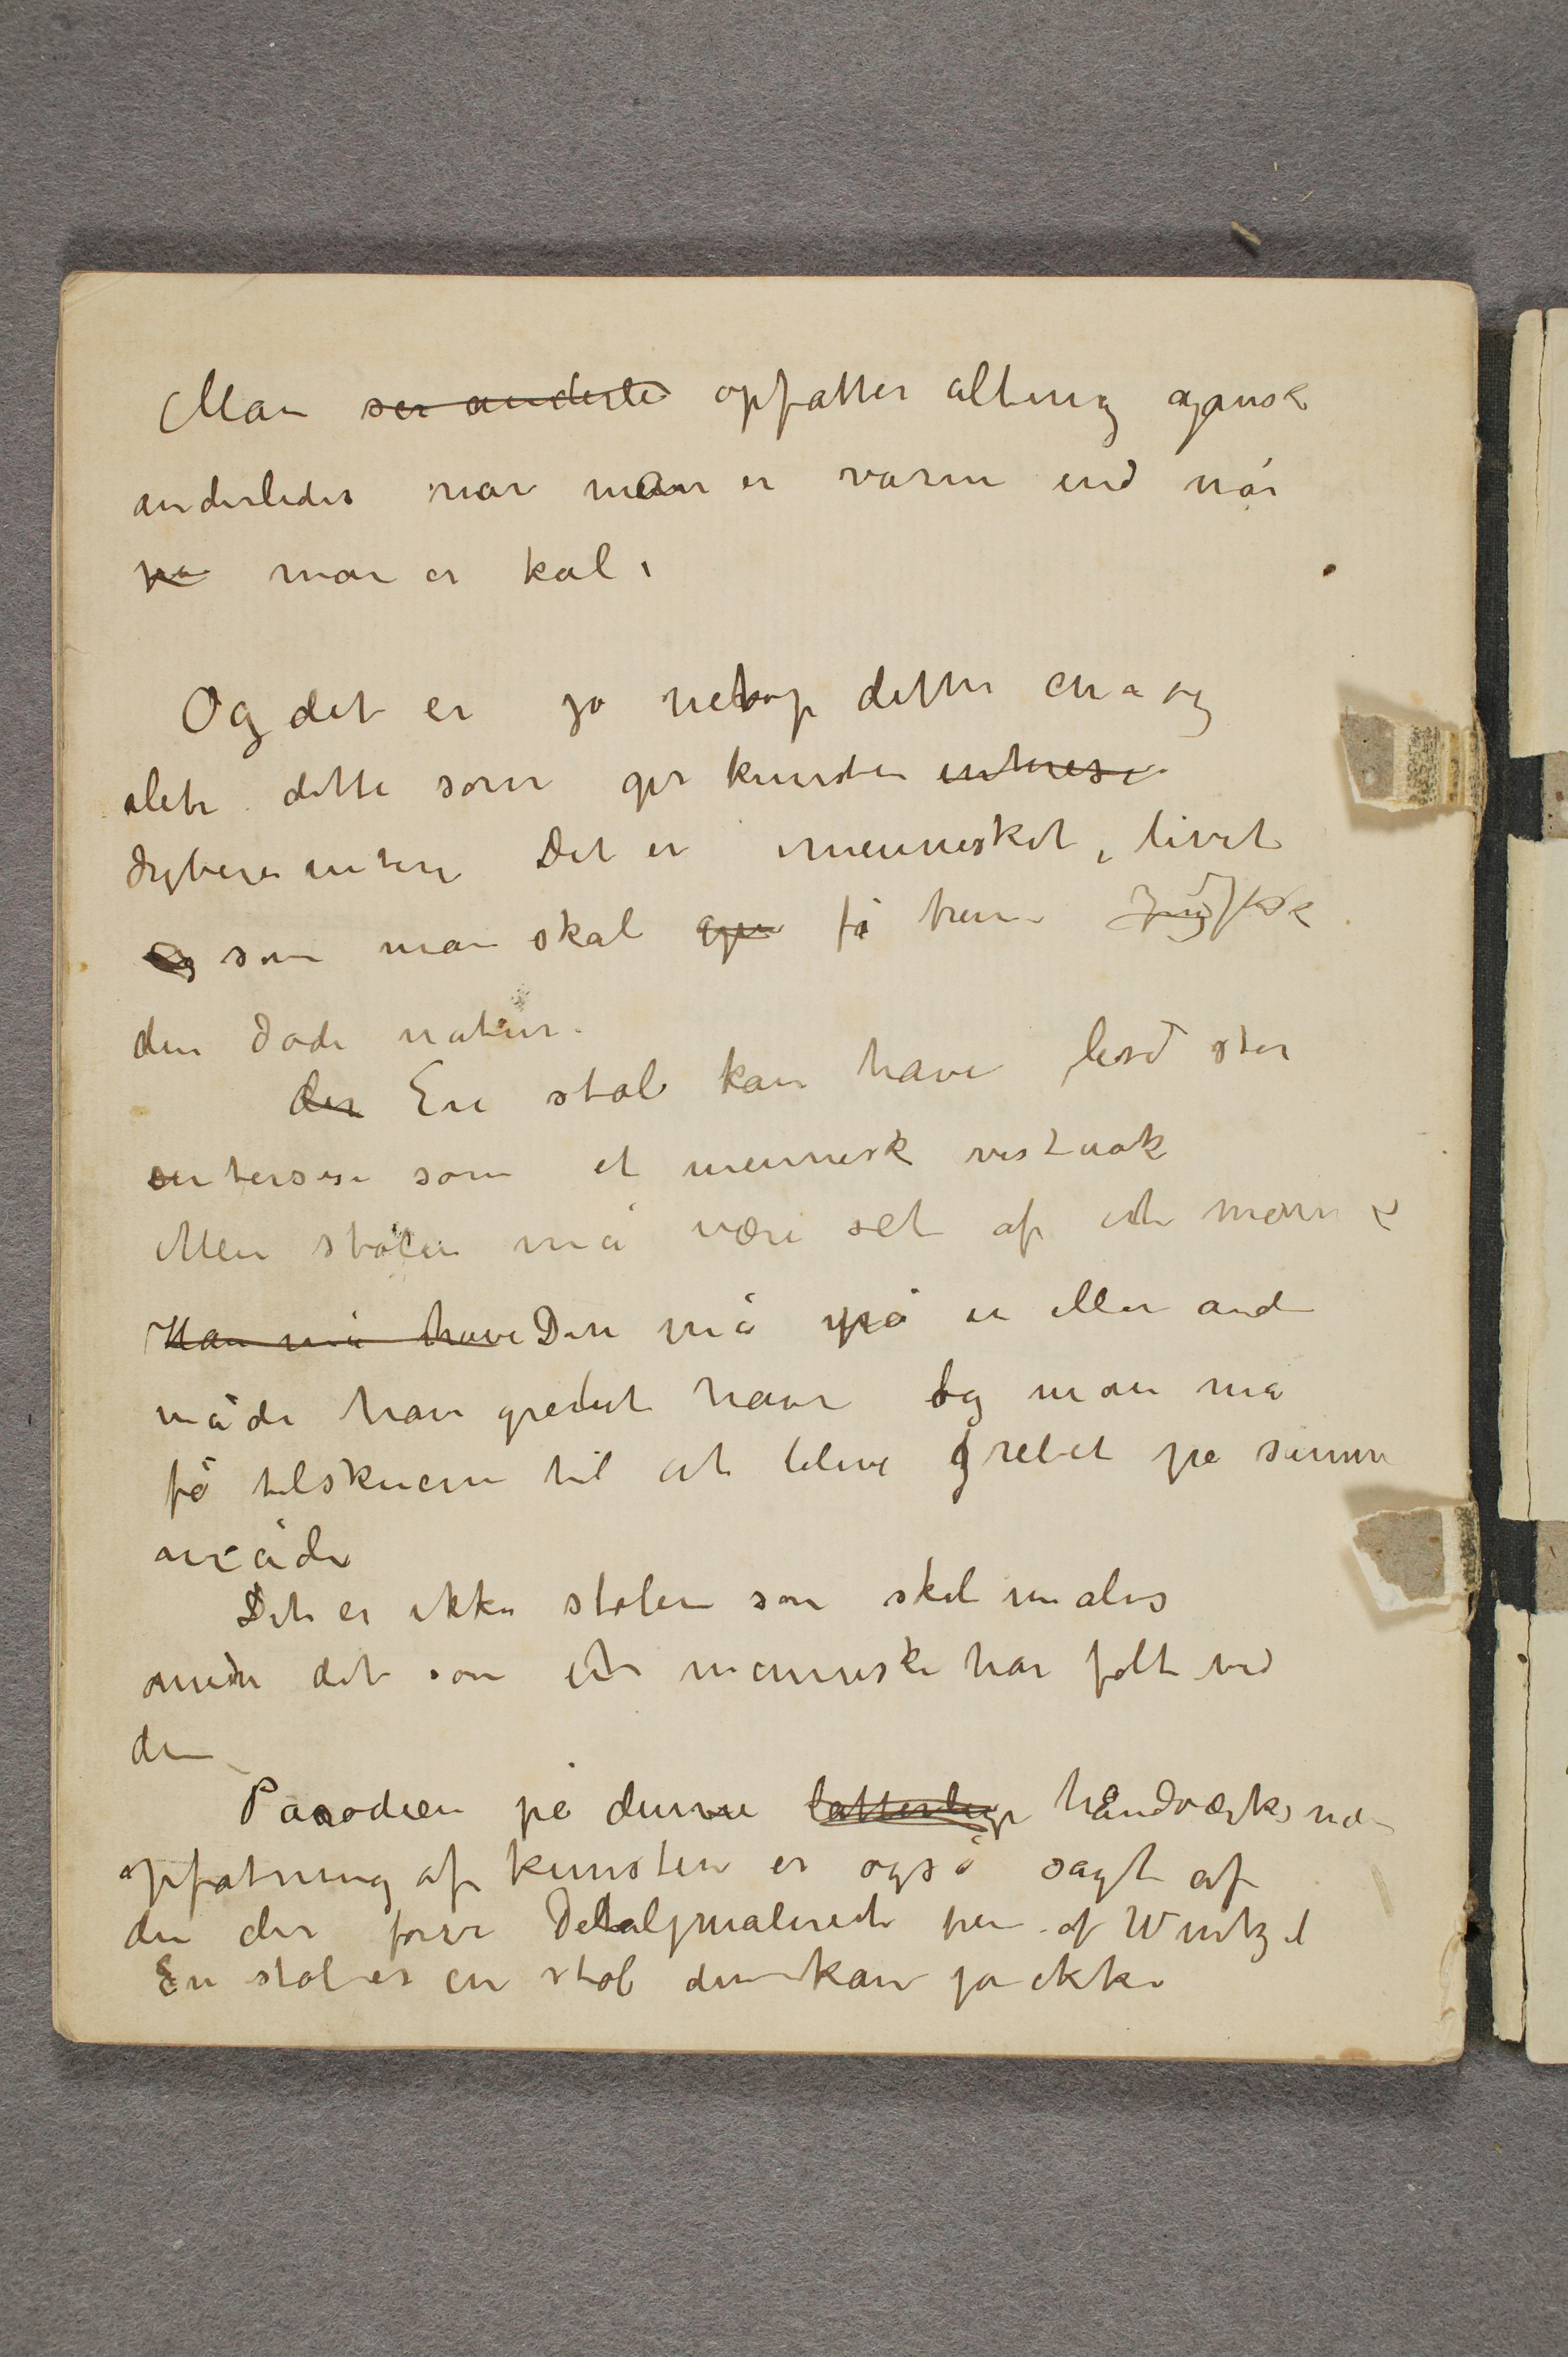 Man ser anderle opfatter alting gansk
anderledes når man er varm end når
på man er kal.
Og det er jo netop dette en a og
alet dette som gir kunsten interese
dybere intere Det er mennesket, livet
og som man skal få frem Ikke
den døde natur.
der En stol kan have ligeså stor
interesse som et mennesk vistnok
Men stolen må være set af et menn
Han må have Den må på en eller and
måde have grebet ham og man må
få tilskueren til at blive grebet på samme
måde
Det er ikke stolen som skal males
men det som et menneske har følt ved
den
Parodien på denne latterlige håndværksmæ
opfatning af kunsten er også sagt af
den der Detaljmaleriet af Wentzel
En stol er en stol den kan jo ikke